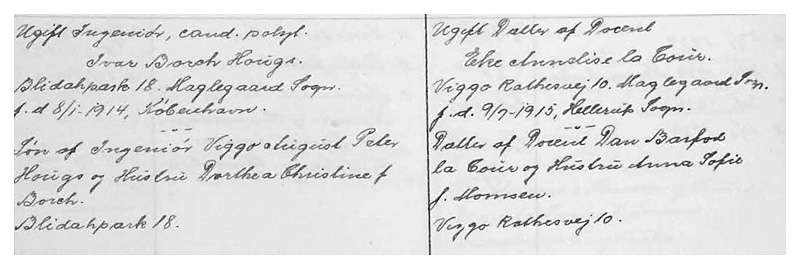 Ugift Ingeniør, cand. polyt.
Ivar Borch Hougs.
Blidahpark 18. Maglegaard Sogn.
f. d. 8/1-1914, København.
Søn af Ingeniør Viggo August Peter
Hougs og Hustru Dorthea Christine f
Borch.
Blidahpark 18.
Ugift Datter af Docent
Else Annelise la Cour.
Viggo Rothesvej 10. Maglegaard Sogn.
f. d. 9/7-1915, Hellerup Sogn.
Datter af Docent Dan Barfod
la Cour og Hustru Anna Sofie
f. Momsen.
Viggo Rothesvej 10.